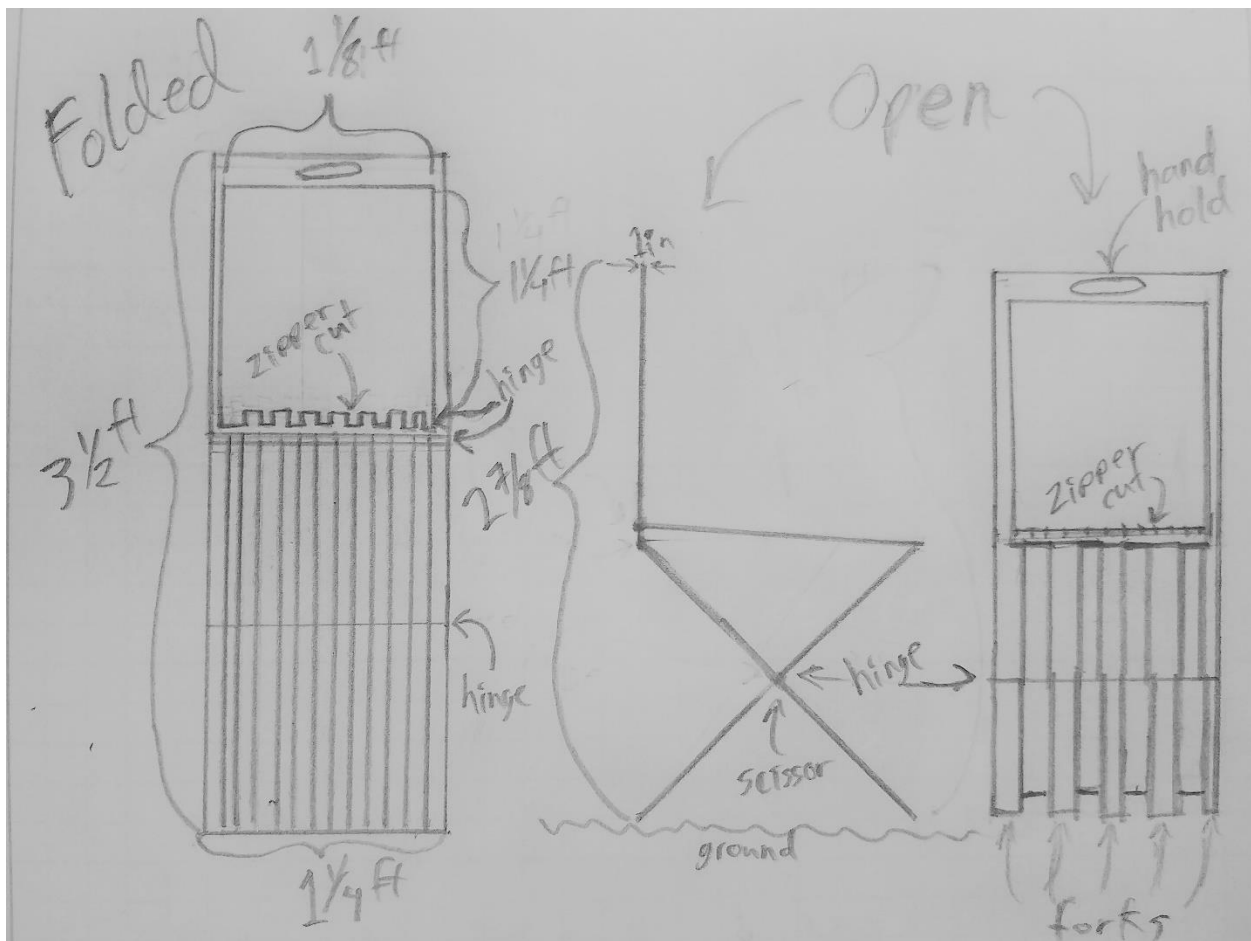 Folded
1 1/8 ft
1 1/4 ft
1 1/4 ft
zipper
cut
hinge
3 1/2 ft
hinge
1 1/4 ft
Open
1in
2 7/8 ft
hinge
scissor
ground
hand
hold
zipper
cut
forks